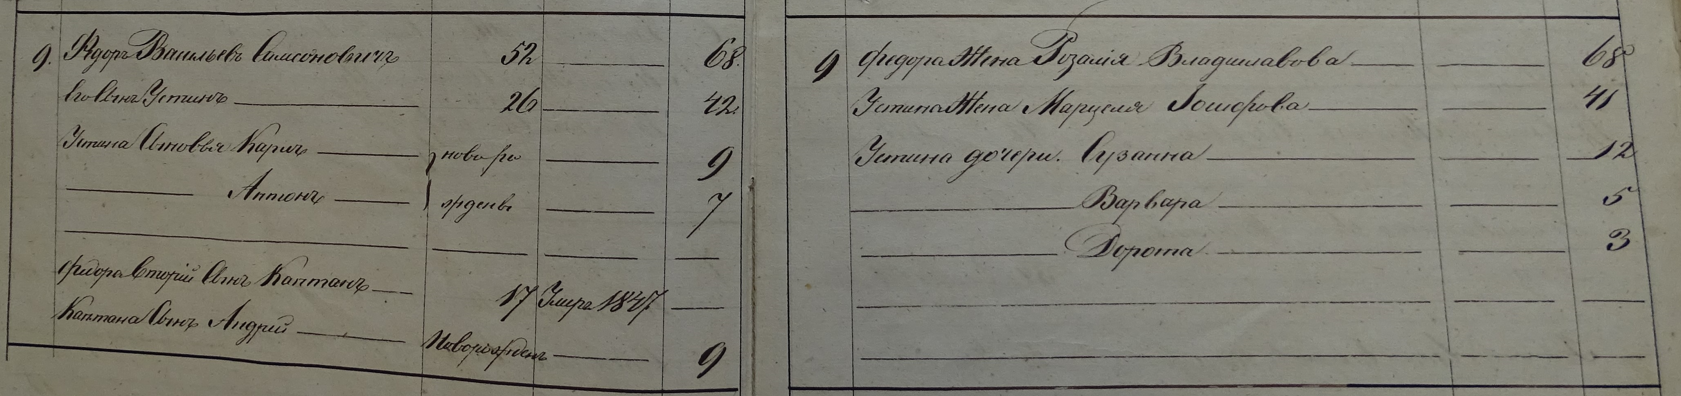 9. Ѳедоръ Васильевъ Самсоновичъ 52 68
Его Сынъ Устинъ 26 42
Устина Сыновья Карлъ новоро 9
Антонъ жденъ 7
Федора Вторый Сынъ Каптанъ 17 Умеръ 1847
Каптана Сынъ Андрей Новорожденъ 9
9 Федора Жена Розалія Владиславова 68
Устина Жена Марцеля Іосифова 41
Устина дочери. Сузанна 12
Варвара 5
Дорота 3